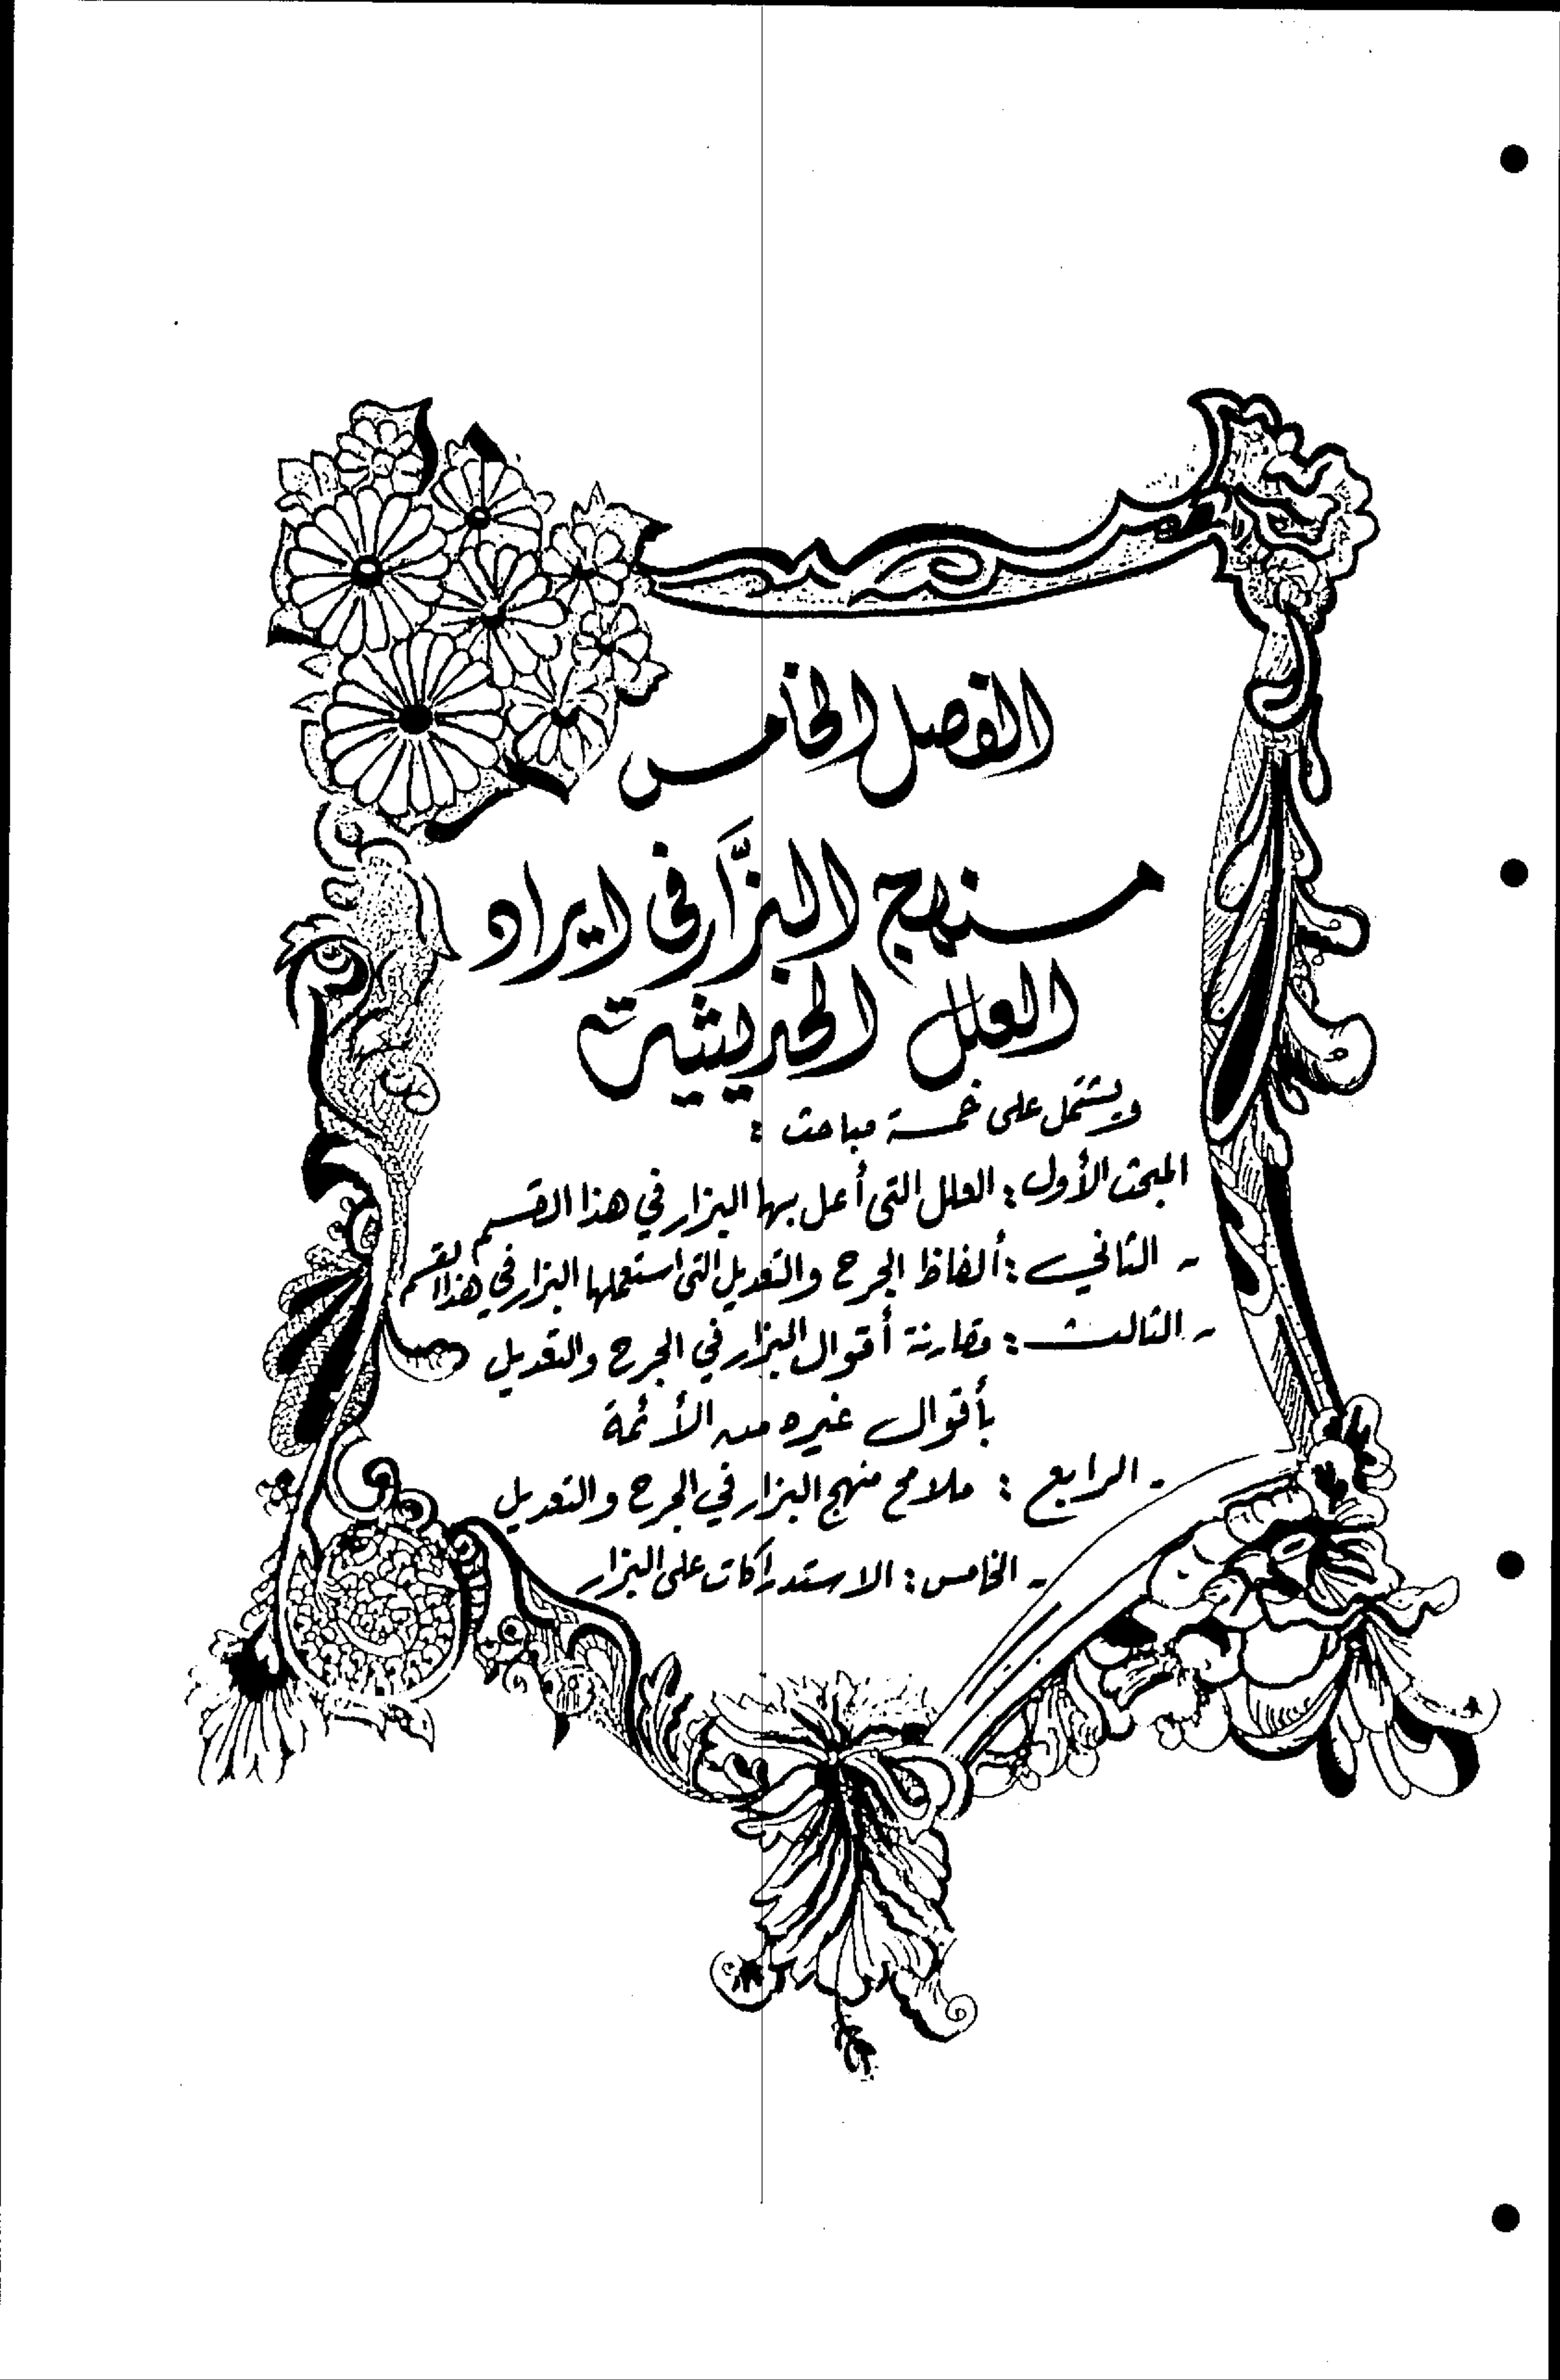 الفصل الخامس
منهج البزَّار فى ايراد
العلل الحديثية
ويشتمل على خمسة مباحث :
المبحث الأول : العلل التى أعل بها البزار في هذا القسم
- الثاني : ألفاظ الجرح والتعديل التى استعملها البزار في هذا القسم
- الثالث : مقارنة أقوال البزار في الجرح والتعديل
بأقوال غيره من الأئمة
- الرابع : ملامح منهج البزار في الجرح والتعديل
- الخامس : الاستدراكات على البزار